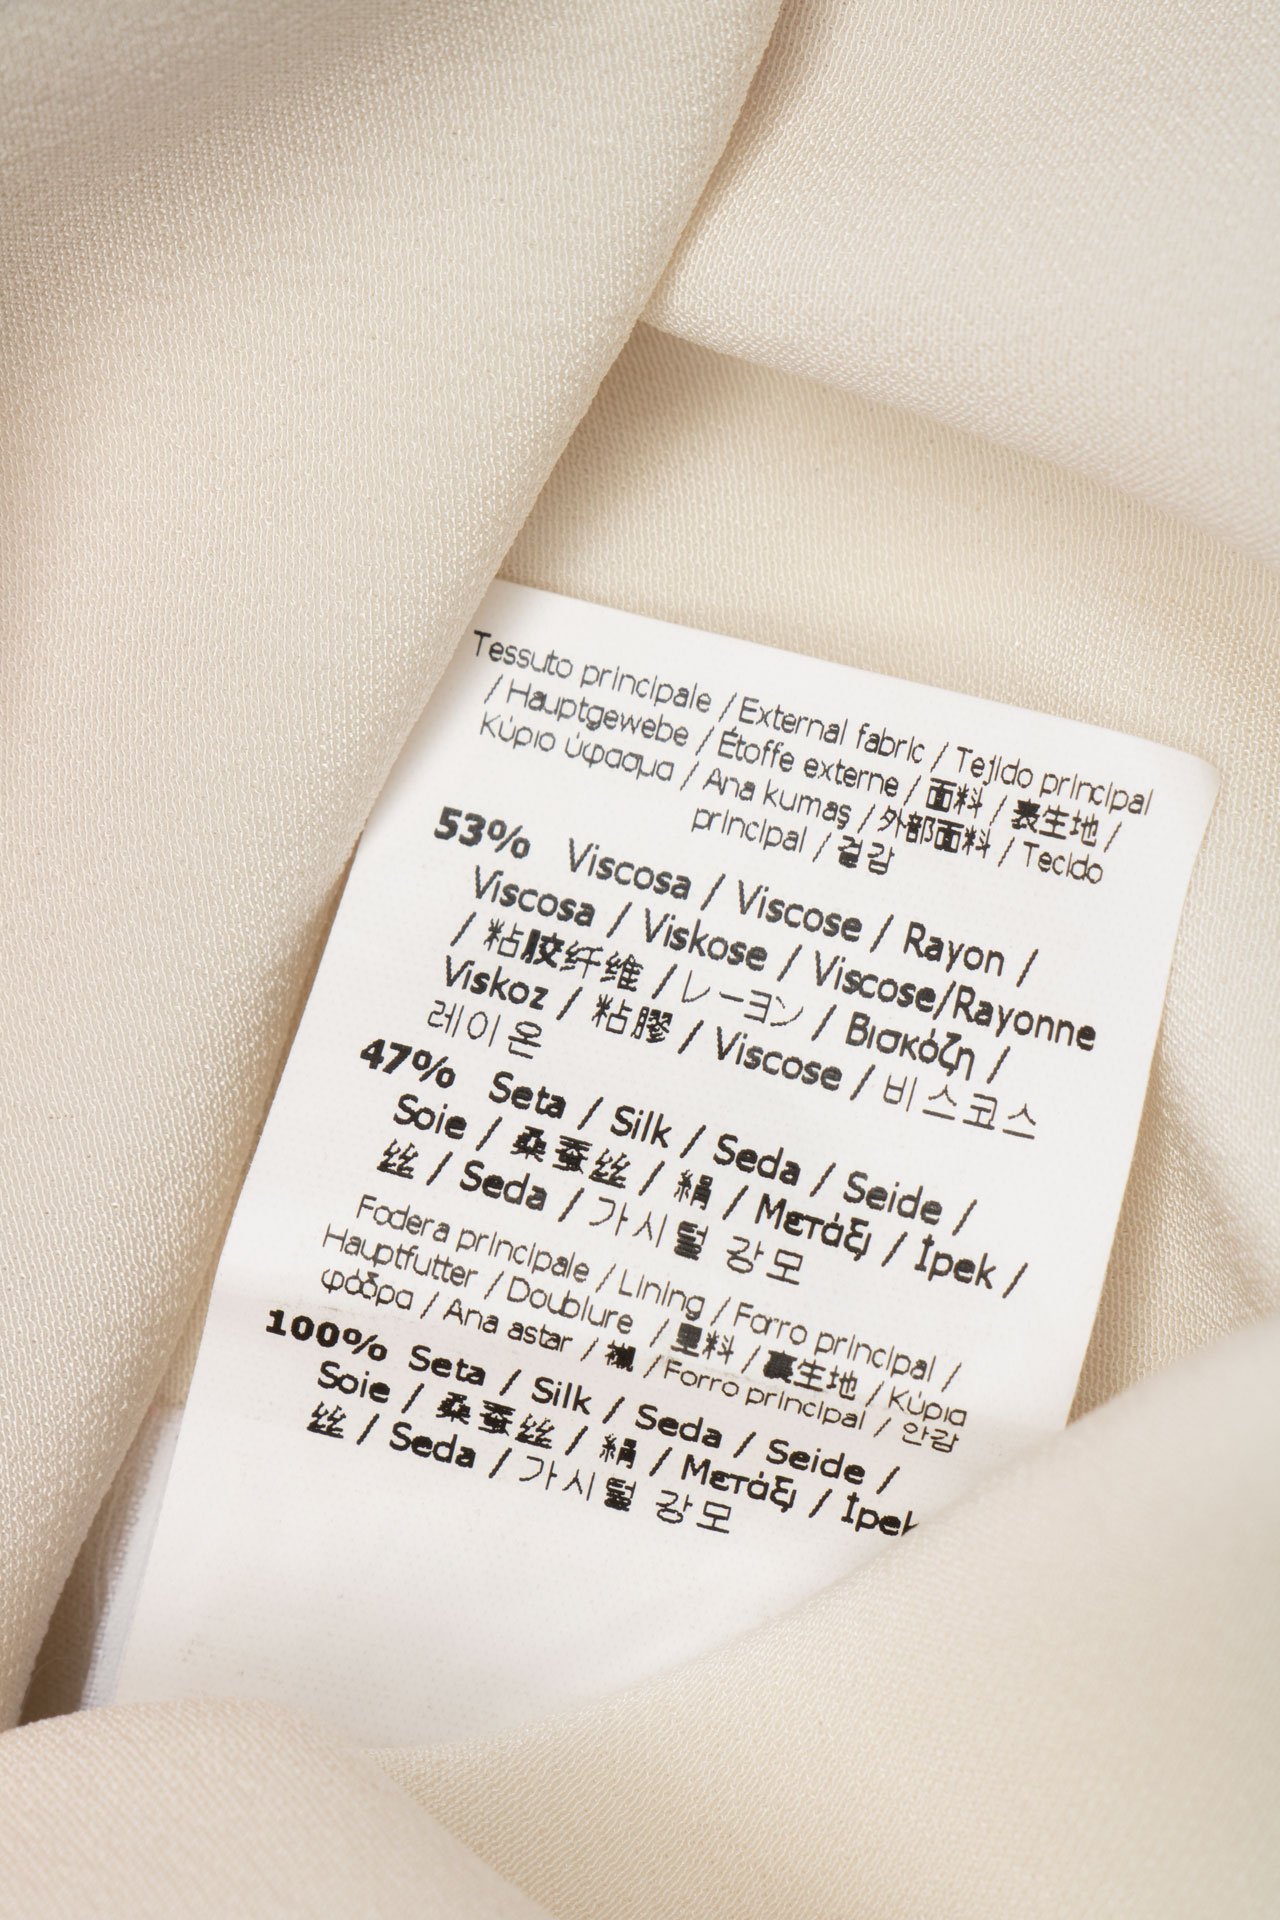 Tessuto principale / External fabric / Tejido principal
/ Hauptgewebe / Étoffe externe / 面料 / 表生地 /
Κύριο ύφασμα / Ana kumaş / 外部面料 / Tecido
principal / 겉감
53% Viscosa / Viscose / Rayon /
Viscosa / Viskose / Viscose/Rayonne
/ 粘胶纤维 / レーヨン / Βισκόζη /
Viskoz / 粘膠 / Viscose / 비스코스
레이온
47% Seta / Silk / Seda / Seide /
Soie / 桑蚕丝 / 絹 / Μετάξι / İpek /
丝 / Seda / 가시털 강모
Fodera principale / Lining / Forro principal /
Hauptfutter / Doublure / 里料 / 裏生地 / Κύρια
φόδρα / Ana astar / 襯 / Forro principal / 안감
100% Seta / Silk / Seda / Seide /
Soie / 桑蚕丝 / 絹 / Μετάξι / İpek
丝 / Seda / 가시털 강모